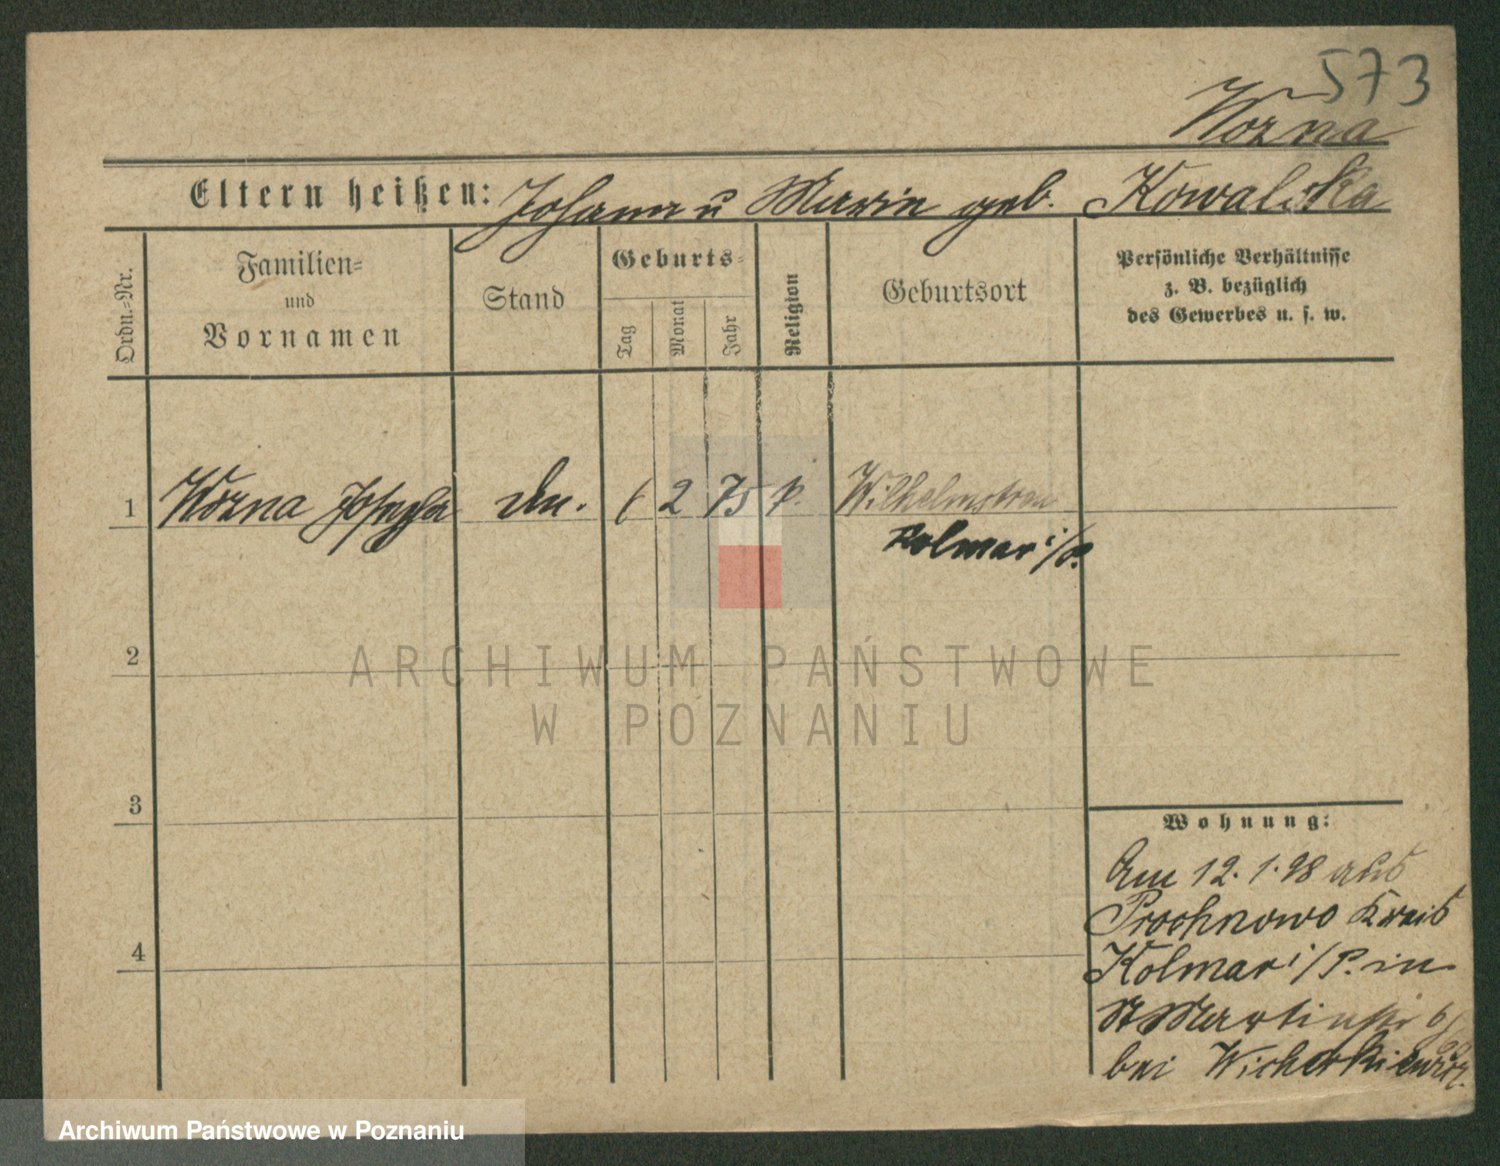 573
Wozna
Eltern heißen: Johann u Marie geb. Kowalska
Ordn.=Nr.
Familien=
und
Vornamen
Stand
Geburts=
Tag
Monat
Jahr
Religion
Geburtsort
Persönliche Verhältnisse
z. B. bezüglich
des Gewerbes u. s. w.
1 Wozna Josepha 2 75 k. Wilhelmstreu
Kolmar i/P.
2
3
4
Wohnung:
Am 12.1.98 aus
Prochnowo Kreis
Kolmar i/P. in
St Martinstr
bei Wicherkiewicz.
ARCHIWUM PAŃSTWOWE
W POZNANIU
Archiwum Państwowe w Poznaniu